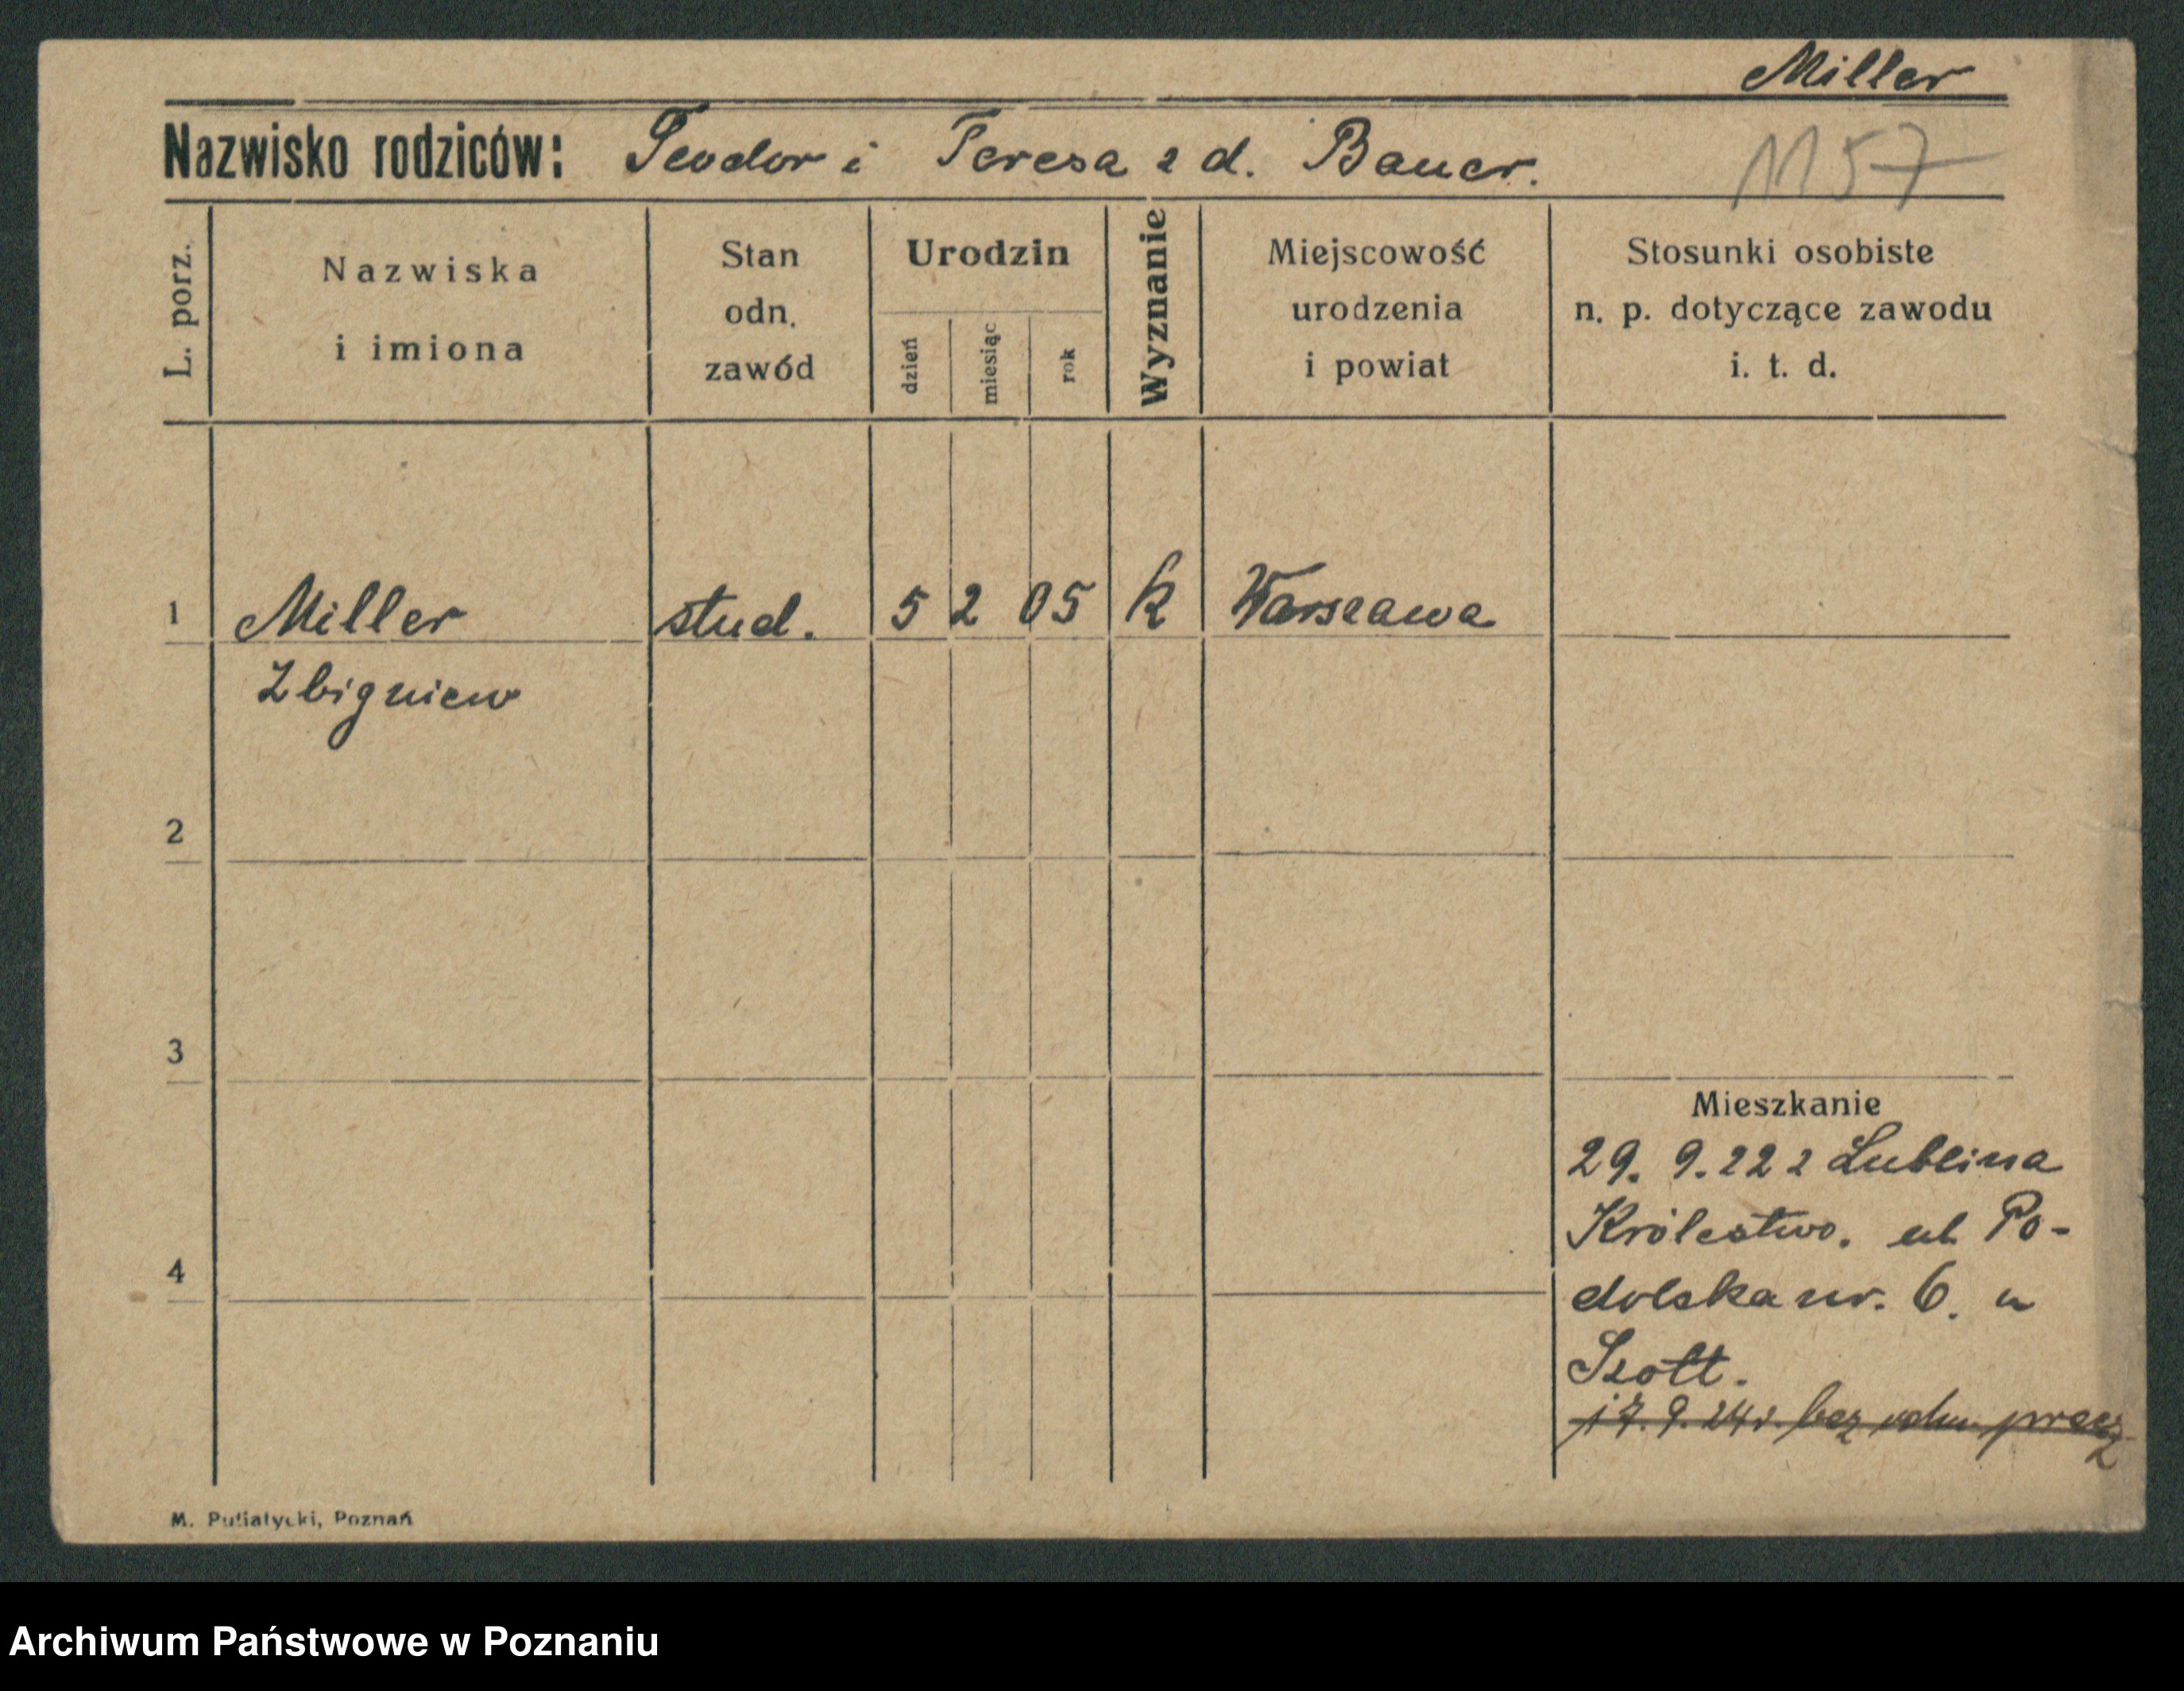 Miller
Nazwisko rodziców: Teodor i Teresa z d. Bauer.
1157
L. porz.
Nazwiska
i imiona
Stan
odn.
zawód
Urodzin
dzień
miesiąc
rok
Wyznanie
Miejscowość
urodzenia
i powiat
Stosunki osobiste
n. p. dotyczące zawodu
i. t. d.
1 Miller stud. 5 2 05 k Warszawa
Zbigniew
2
3
Mieszkanie
29. 9. 22 z Lublina
Królestwo. ul. Po-
4
dolska nr. 6. u
Szott.
17. 9. 24 r. bez precz
M. Putiatycki, Poznań
Archiwum Państwowe w Poznaniu